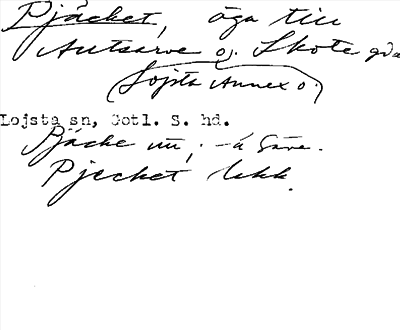 Pjäcket, äga till
Autsarve o. Skote gda
(Lojsta Annex o.)
Lojsta sn, Gotl. S. hd.
Pjäcke m, -å Säve.
Pjecket lekk.